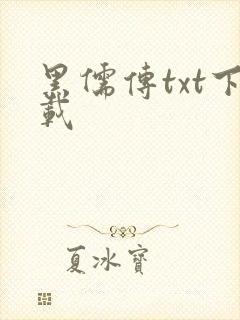 黑儒傳txt下
載
夏冰寶